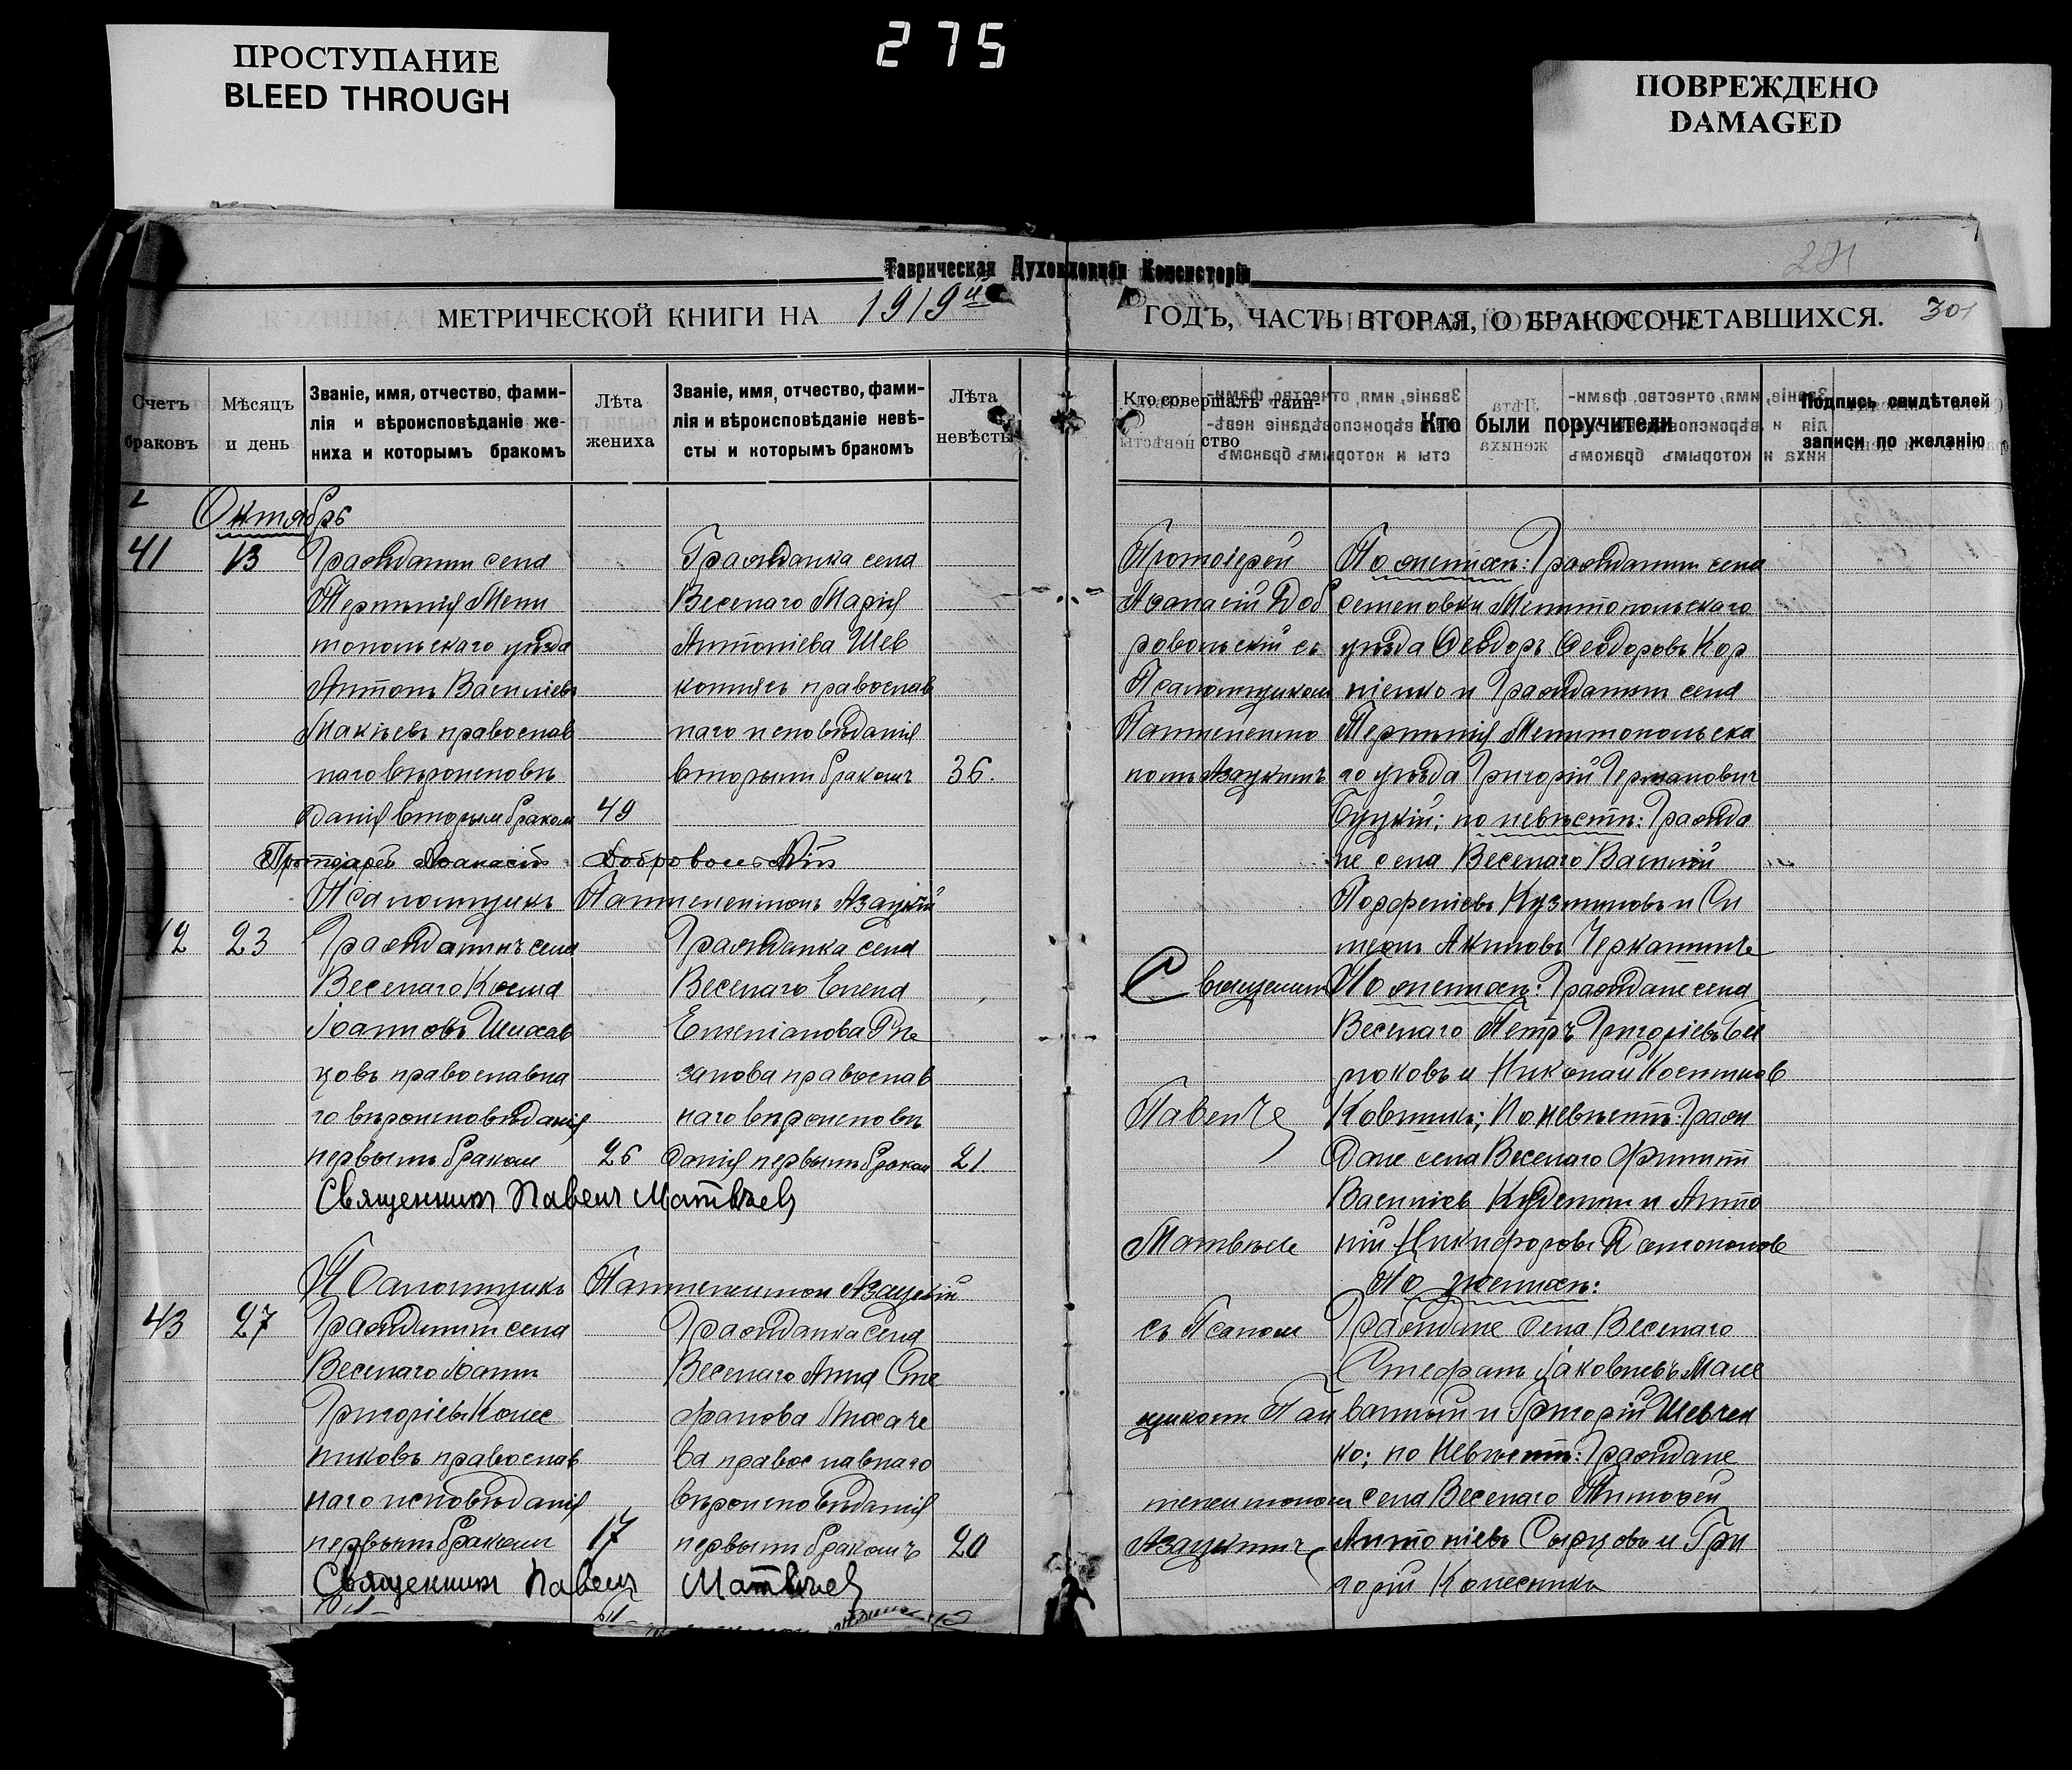 275
ПРОСТУПАНИЕ
BLEED THROUGH
ПОВРЕЖДЕНО
DAMAGED
Таврическая Духовной Консисторіи
МЕТРИЧЕСКОЙ КНИГИ НА 1919й ГОДЪ, ЧАСТЬ ВТОРАЯ, О БРАКОСОЧЕТАВШИХСЯ. 301
Счетъ браковъ
Мѣсяцъ и день
Званіе, имя, отчество, фами-
лія и вѣроисповѣданіе же-
ниха и которымъ бракомъ
Лѣта жениха
Званіе, имя, отчество, фами-
лія и вѣроисповѣданіе невѣ-
сты и которымъ бракомъ
Лѣта невѣсты
Кто совершалъ таин-
ство
Кто были поручители
Подпись свидѣтелей
записи по желанію
Октябрь
41
13
Гражданинъ села
Терпѣнія Мели
топольскаго уѣзда
Антонъ Василіевъ
Макѣевъ православ
наго вѣроисповѣ
данія вторымъ бракомъ
49
Гражданка села
Веселаго Марія
Антоніева Шев
православ
наго исповѣданія
вторымъ бракомъ
36.
Протоіерей
Аѳанасій Доб
ровольскій съ
Псаломщикомъ
Пантелеимо
номъ Азацкимъ
По женихѣ: Гражданинъ села
Семеновки Мелитопольскаго
уѣзда Ѳеодоръ Ѳеодоровъ Кор
ніенко и Гражданинъ села
Терпѣнія Мелитопольска
го уѣзда Григорій Германовичъ
Буцкій; по невѣстѣ: Гражда
не села Веселаго Василій
Порфеніевъ Кузминовъ и Си
меонъ Акимовъ Черкашинъ
Протоіерей Аѳанасій Добровольскій
Псаломщикъ Пантелеимонъ Азацкій
42
23
Гражданинъ села
Веселаго Косма
Іоанновъ
ковъ православна
го вѣроисповѣданія
первымъ бракомъ
26
Гражданка села
Веселаго Елена
православ
наго вѣроисповѣ
данія первымъ бракомъ
21.
Священникъ
Павелъ
Матвѣевъ
По женихѣ: Граждане села
Веселаго Петръ Григоріевъ
и Николай
Ковшикъ; По невѣстѣ: Граж
дане села Веселаго Филиппъ
Василіевъ и Анто
ній Никифоровъ
Священникъ Павелъ Матвѣевъ
Псаломщикъ Пантелеимонъ Азацкій
43
27
Гражданинъ села
Веселаго Іоаннъ
Григоріевъ Колес
никовъ православ
наго исповѣданія
первымъ бракомъ
17
Гражданка села
Веселаго Анна Сте
фанова Лихаче
ва православнаго
вѣроисповѣданія
первымъ бракомъ
20
съ Псалом
щикомъ Пан
телеимономъ
Азацкимъ
По женихѣ:
Граждане села Веселаго
Стефанъ Іаковлевъ Мале
ванный и Григорій Шевчен
ко; по Невѣстѣ: Граждане
села Веселаго Тимоѳей
Антоніевъ Сырцовъ и Гри
горій Колесникъ
Священникъ Павелъ Матвѣевъ